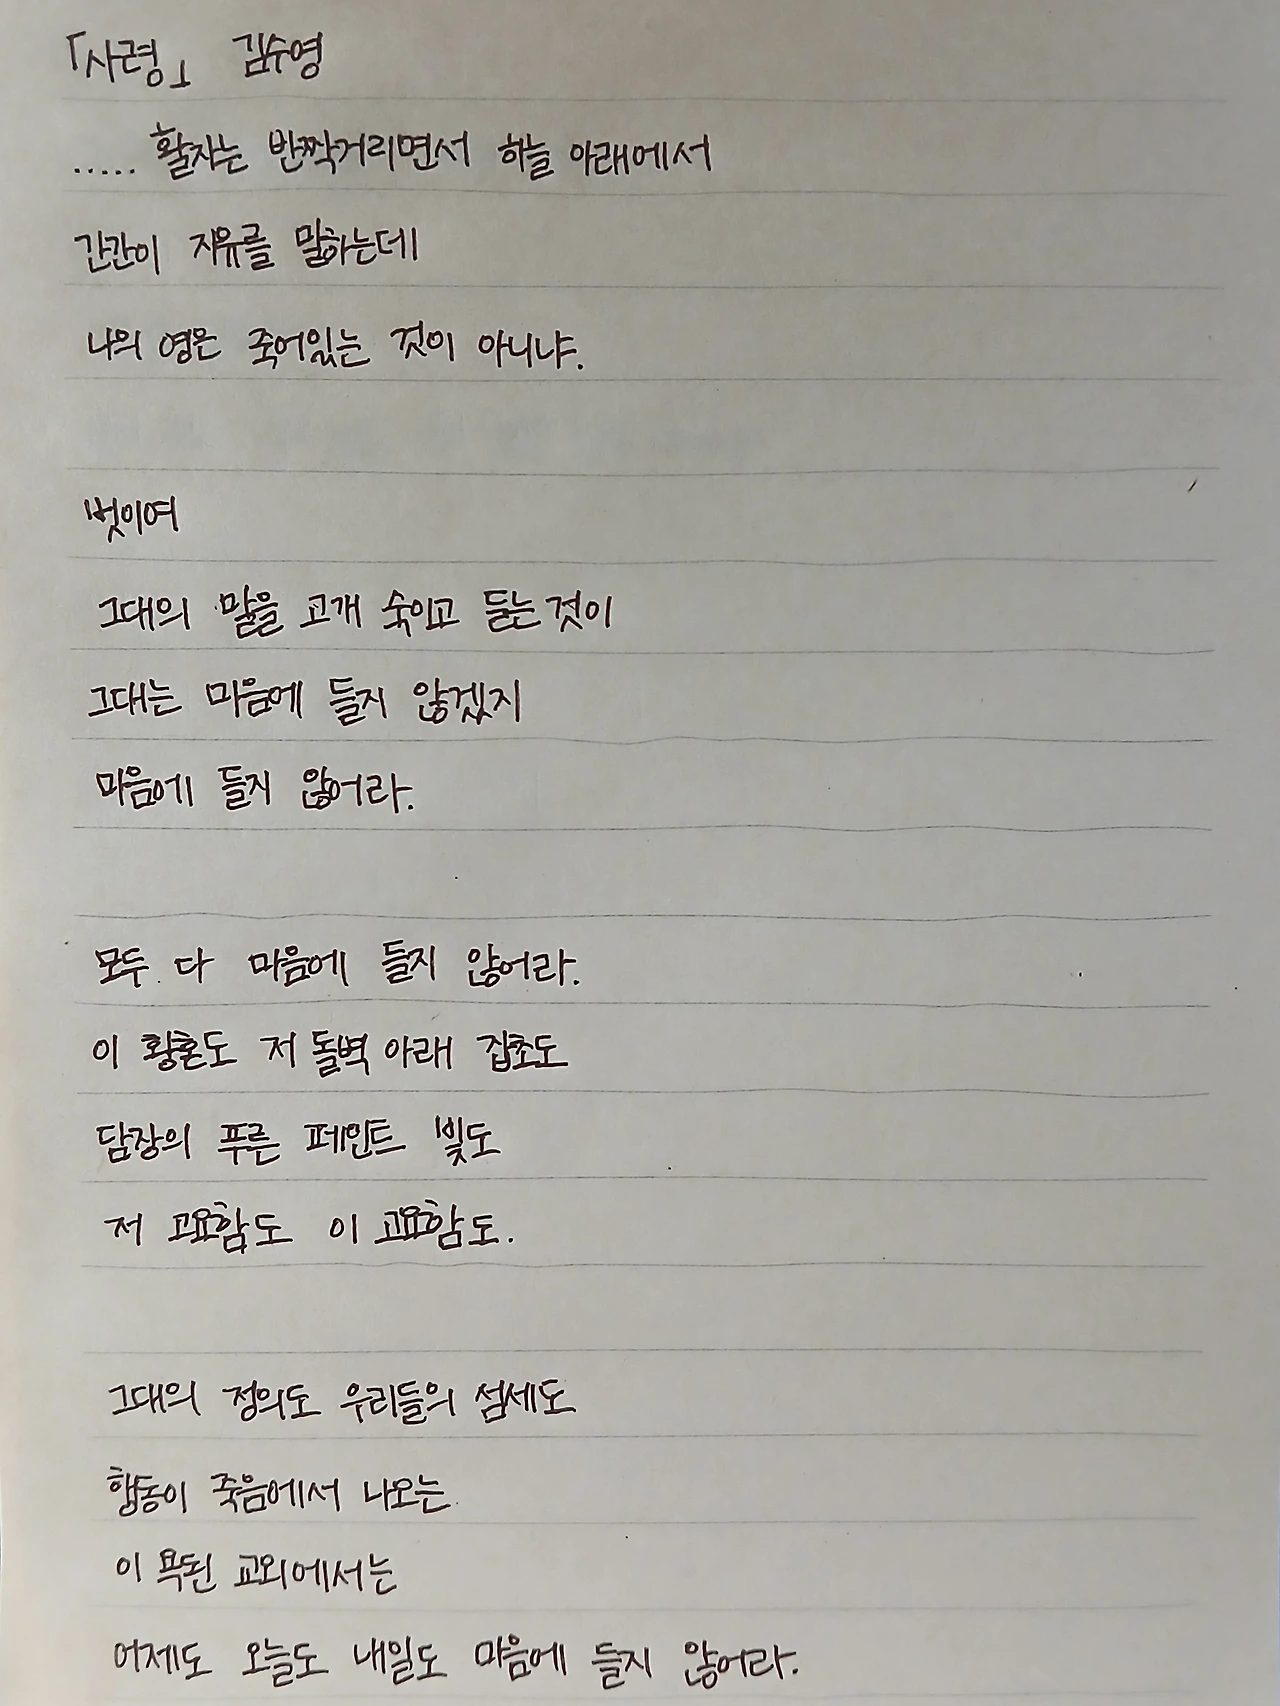 「사령」 김수영
..... 활자는 반짝거리면서 하늘 아래에서
간간이 자유를 말하는데
나의 영은 죽어있는 것이 아니냐.
벗이여
그대의 말을 고개 숙이고 듣는 것이
그대는 마음에 들지 않겠지
마음에 들지 않어라.
모두 다 마음에 들지 않어라.
이 황혼도 저 돌벽 아래 잡초도
담장의 푸른 페인트 빛도
저 고요함도 이 고요함도.
그대의 정의도 우리들의 섬세도
행동이 죽음에서 나오는
이 욕된 교외에서는
어제도 오늘도 내일도 마음에 들지 않어라.